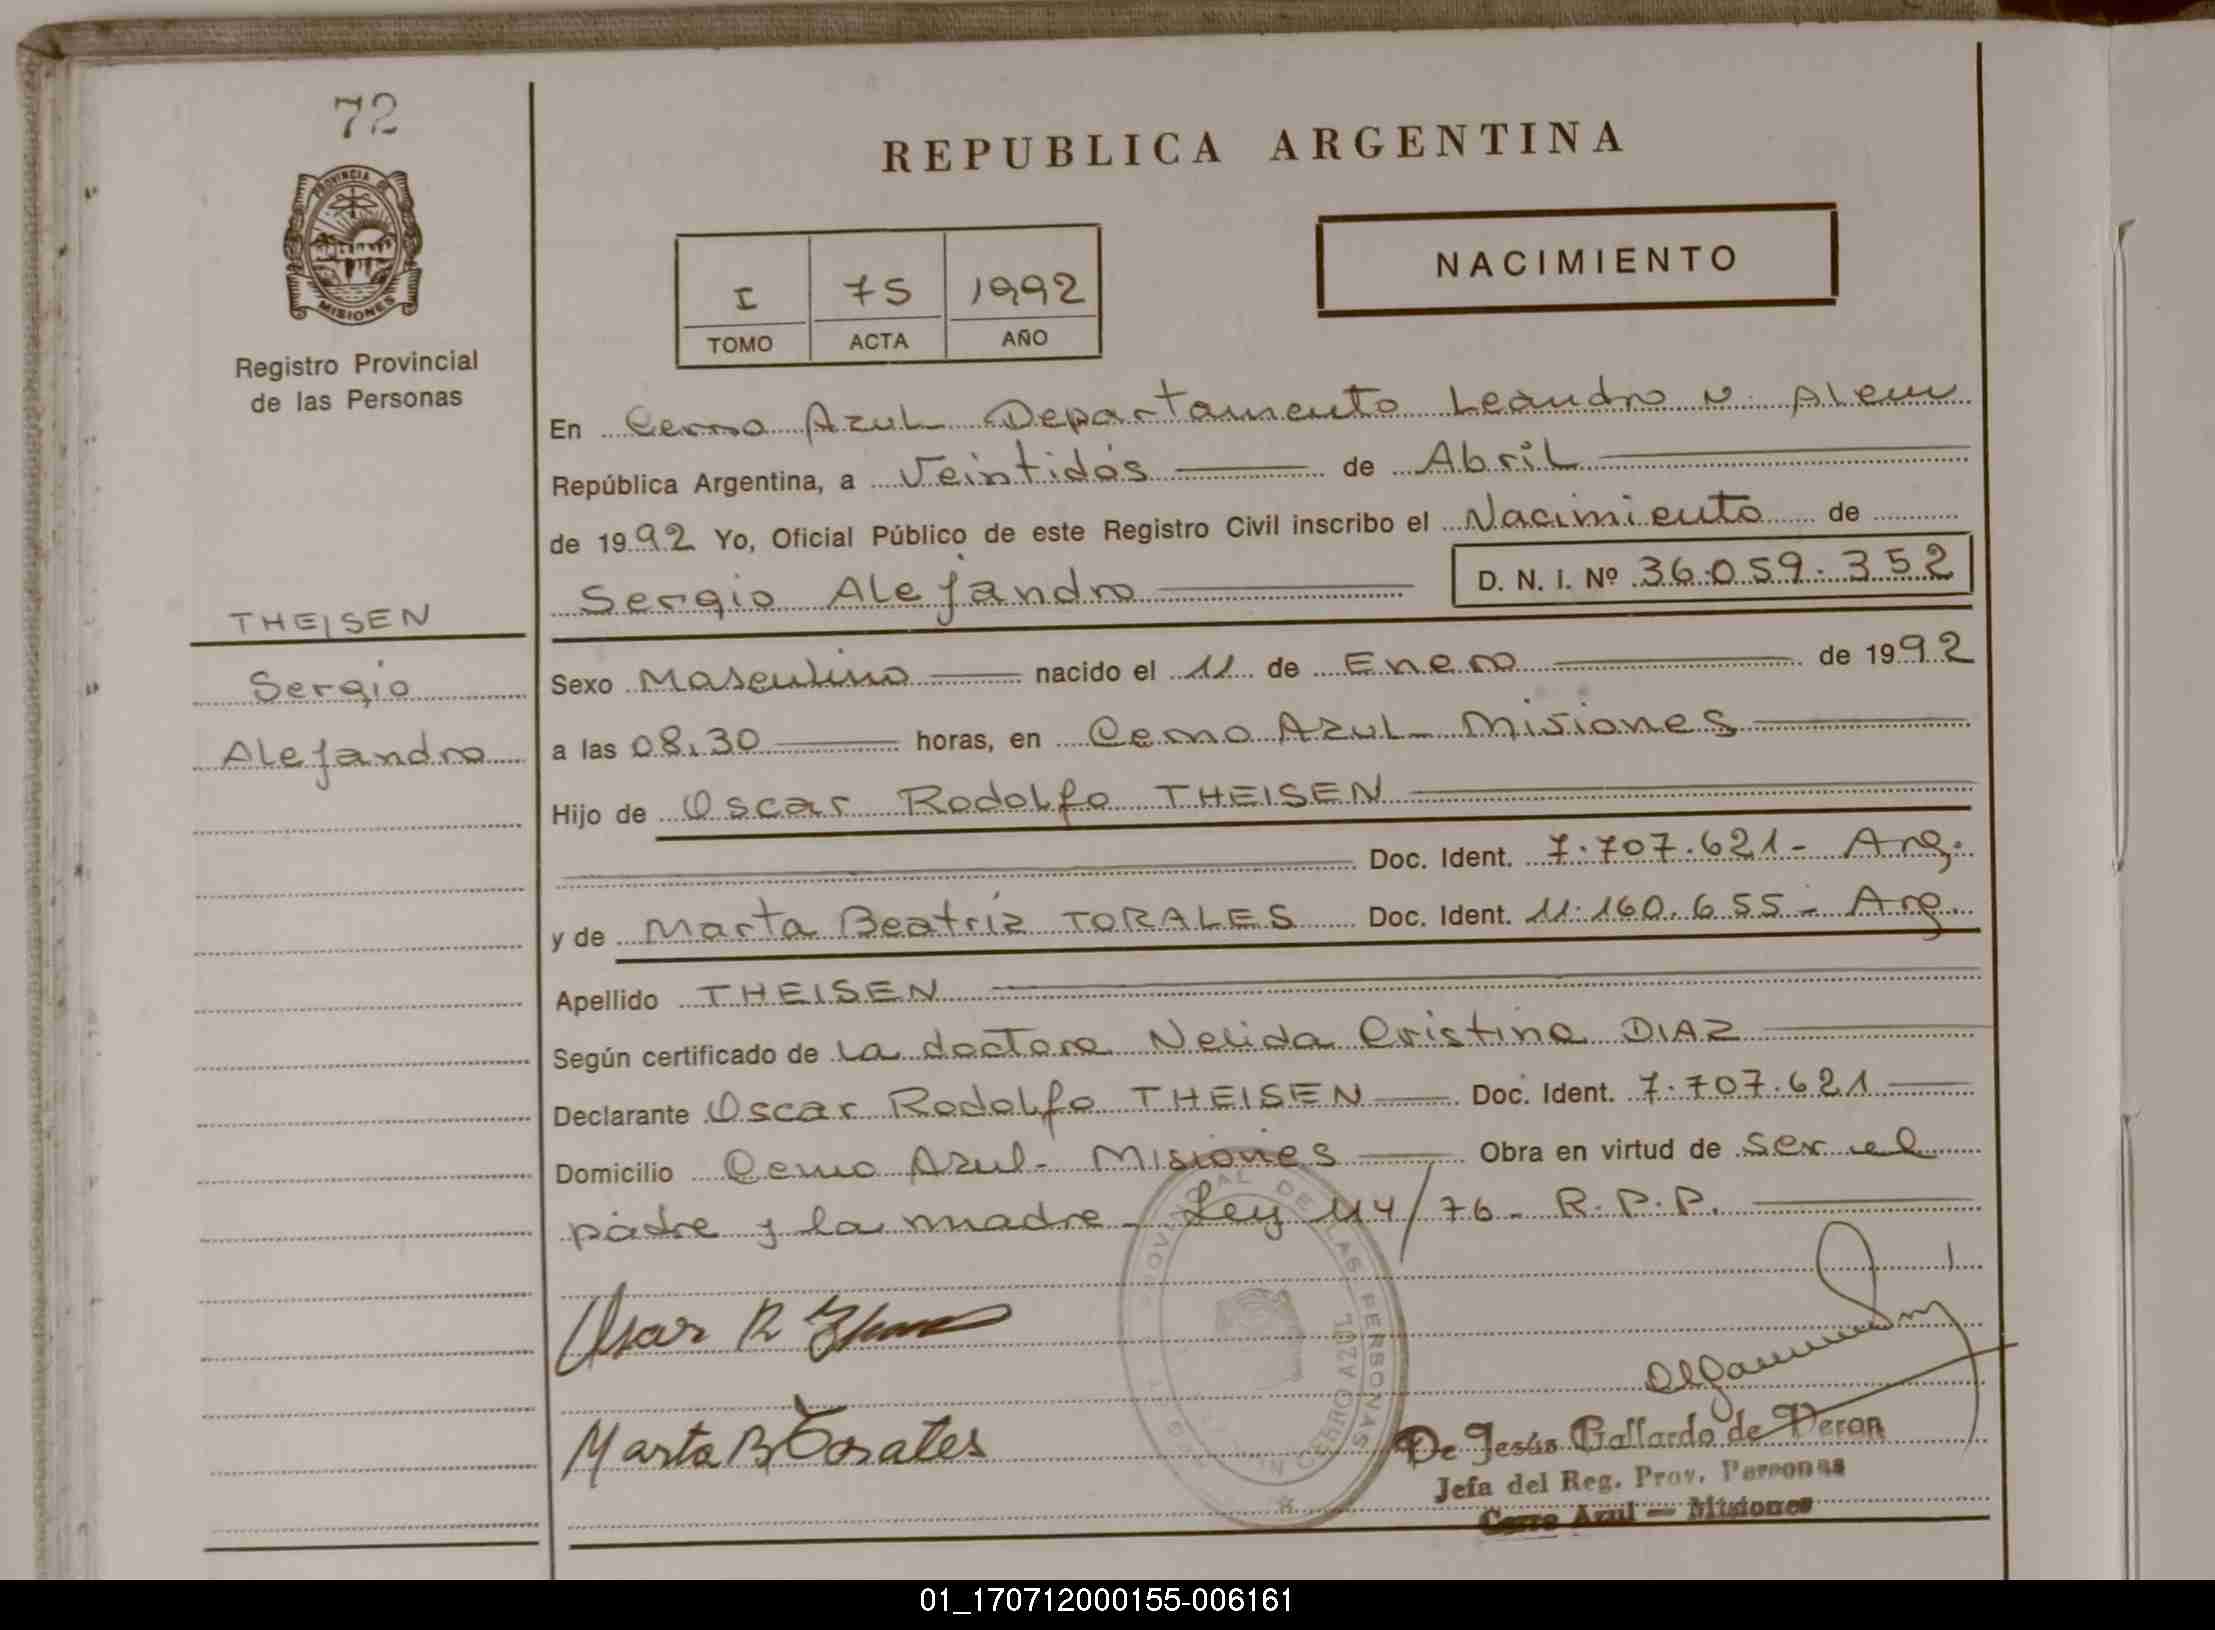 72
PROVINCIA DE
MISIONES
Registro Provincial
de las Personas
THEISEN
Sergio
Alejandro
REPUBLICA ARGENTINA
NACIMIENTO
I 75 1992
TOMO ACTA AÑO
En Cerro Azul Departamento Leandro N. Alem
República Argentina, a Veintidós de Abril
de 1992 Yo, Oficial Público de este Registro Civil inscribo el Nacimiento de
Sergio Alejandro D. N. I. Nº 36.059.352
Sexo Masculino nacido el 11 de Enero de 1992
a las 08.30 horas, en Cerro Azul - Misiones
Hijo de Oscar Rodolfo THEISEN
Doc. Ident. 7.707.621 - Arg.
y de Marta Beatriz TORALES Doc. Ident. 11.160.655 - Arg.
Apellido THEISEN
Según certificado de la doctora Nelida Cristina DIAZ
Declarante Oscar Rodolfo THEISEN Doc. Ident. 7.707.621
Domicilio Cerro Azul - Misiones Obra en virtud de ser el
padre y la madre - Ley 114/76 - R.P.P.
PROVINCIAL DE LAS PERSONAS
CERRO AZUL
Oscar R
Marta B Torales
De Jesús Gallardo de Veron
Jefa del Reg. Prov. Personas
Cerro Azul - Misiones
01_170712000155-006161